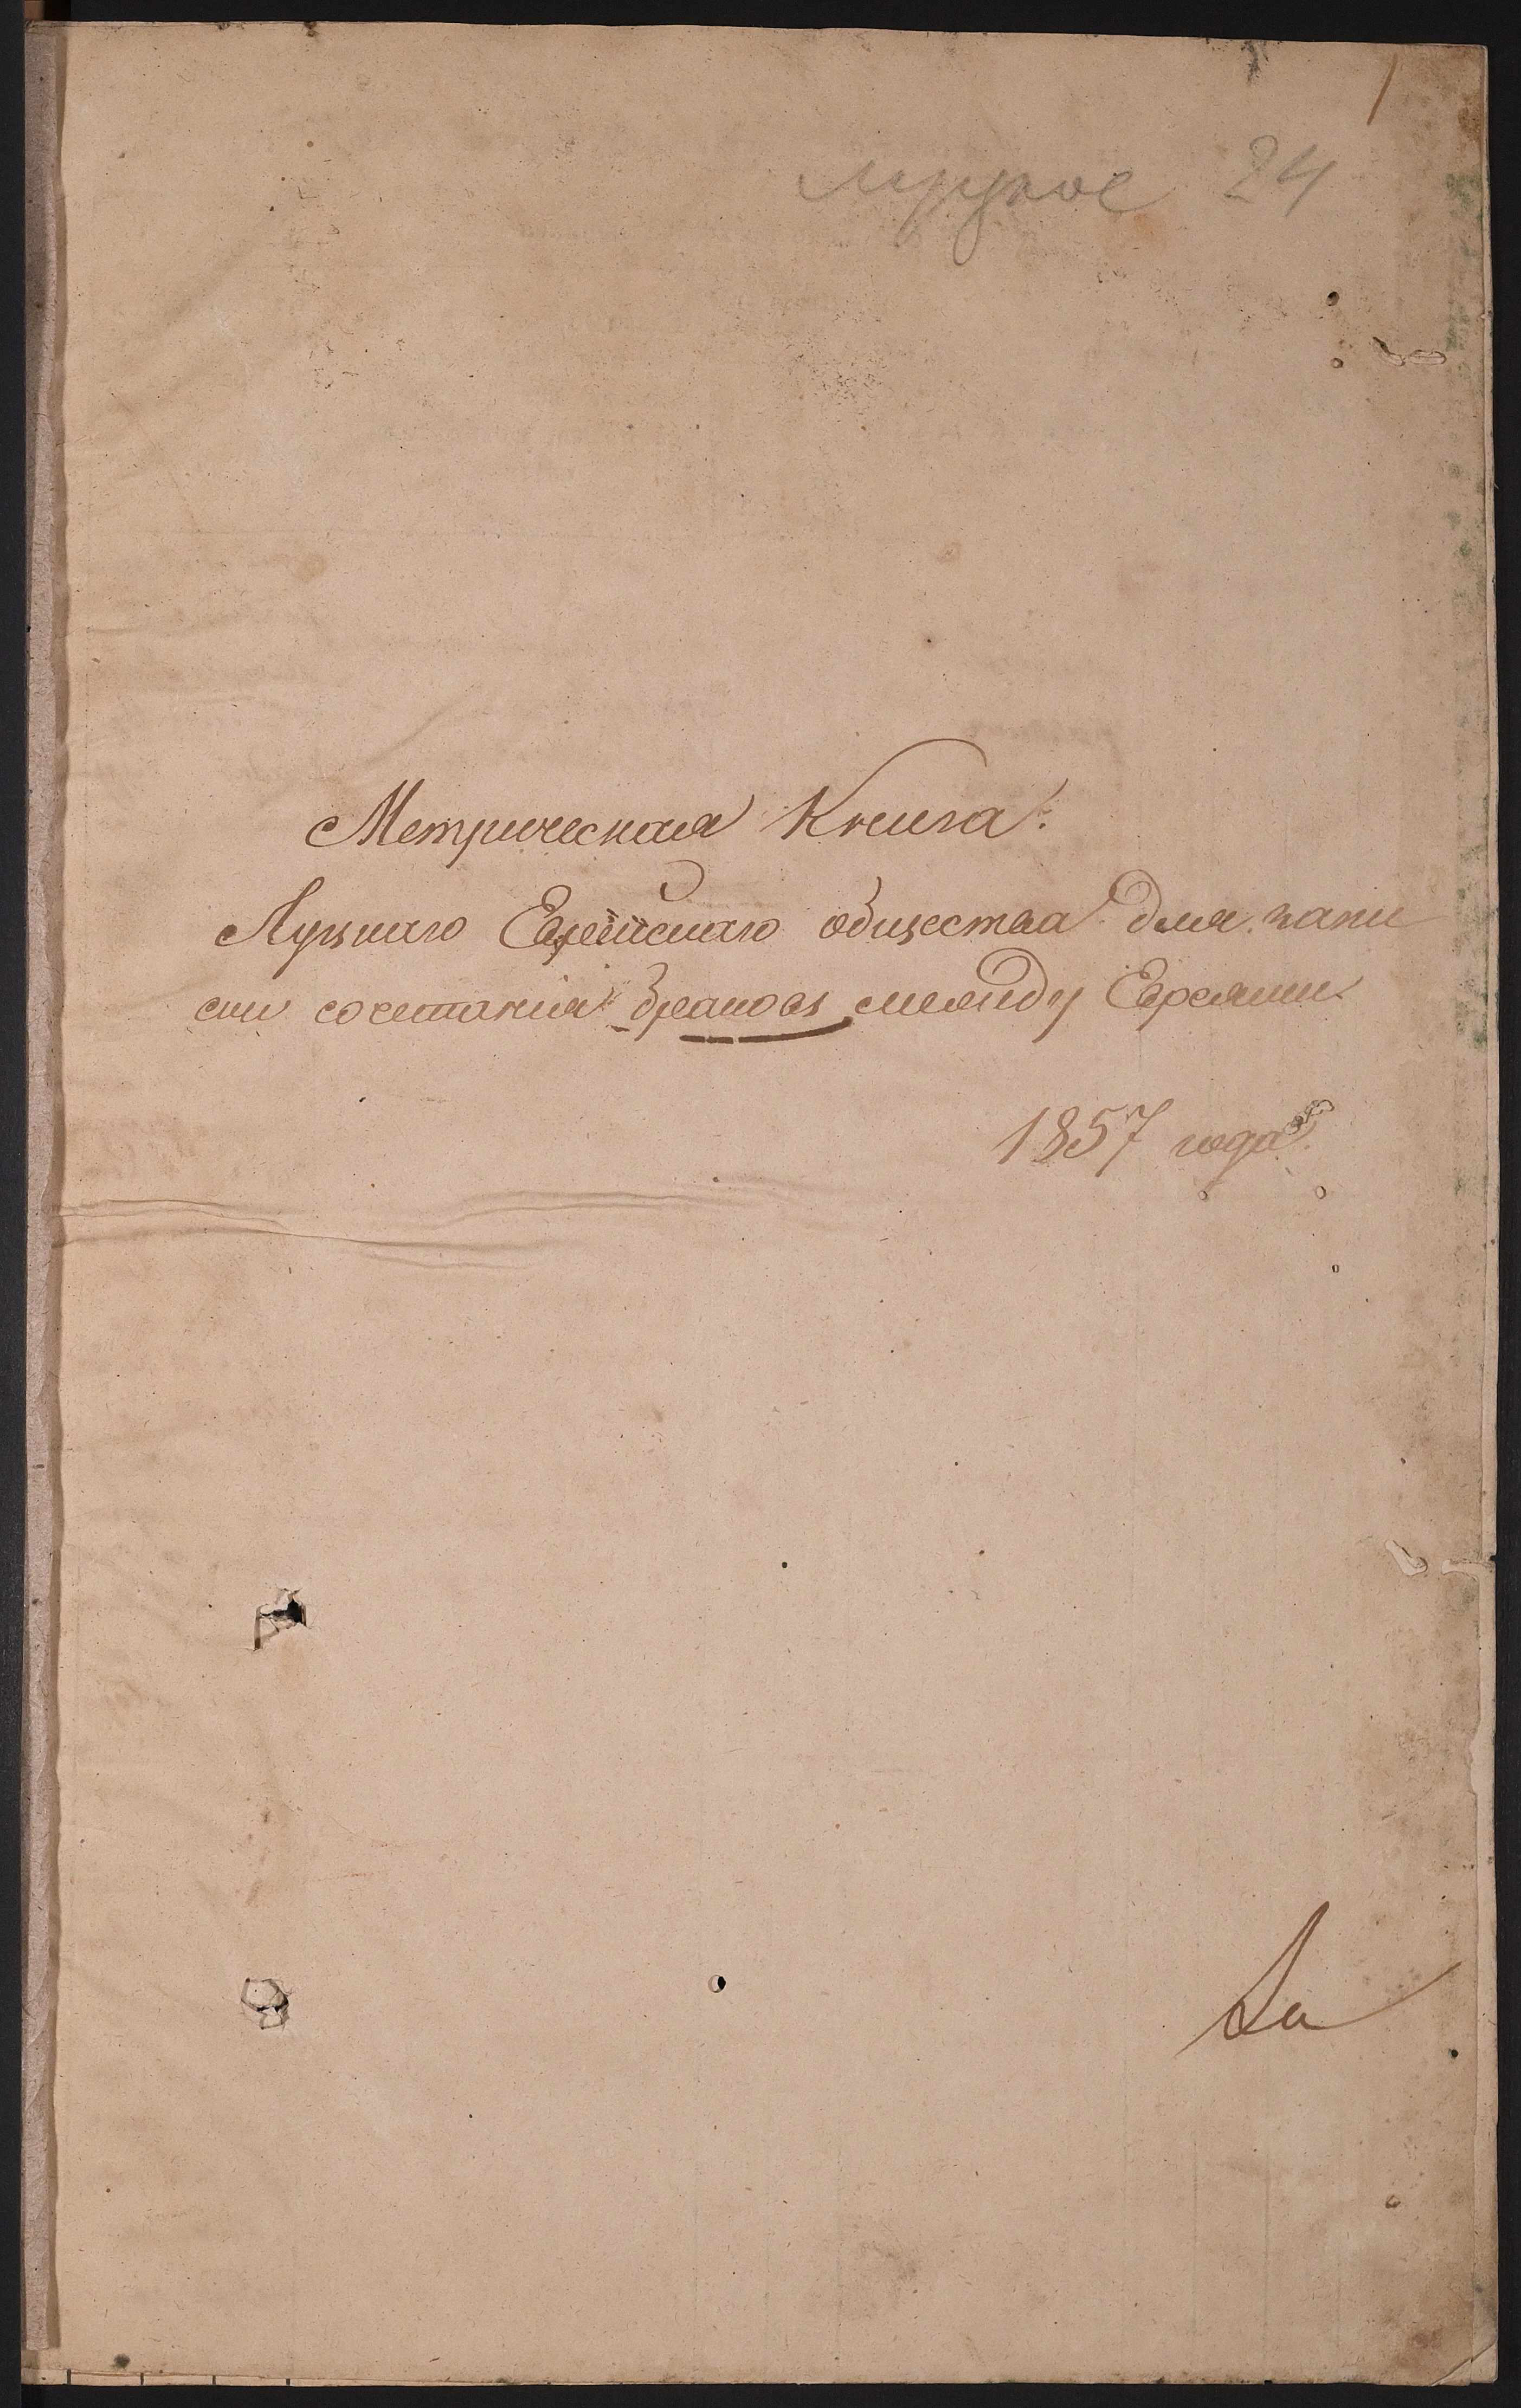 1
24
Метрическая Книга.
Луцкаго Еврейскаго общества для запи
си сочетанія браковъ между Евреями
1857 года.